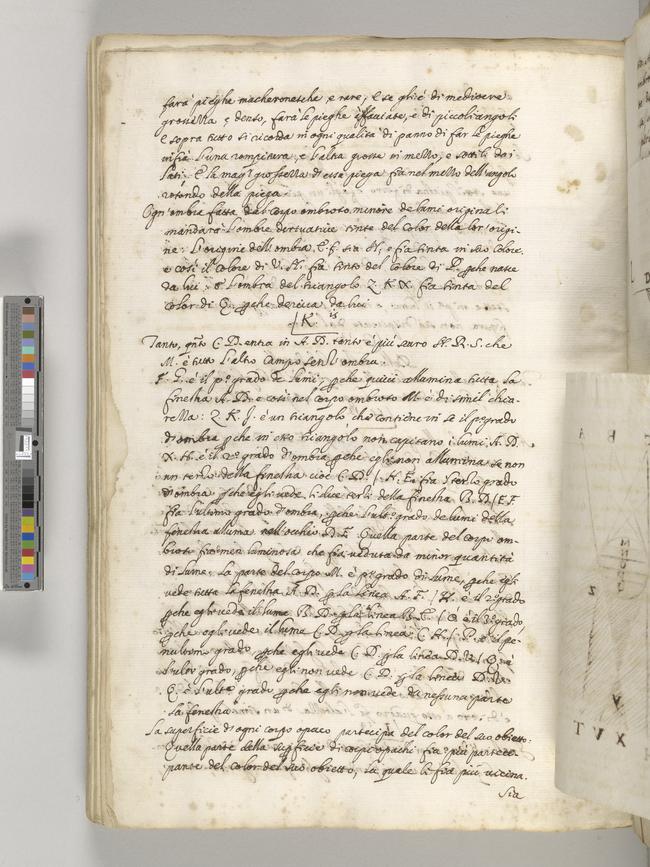 farà pieghe macheronesche e rare, e se ghè di mediocre
grossezza, e denso, farà le pieghe affaciate, e di picoli angoli
E sopra tutto si ricorda in ogni qualità di panno di far le pieghe
infra l'una rompitura, e l'altra grosse in mezzo, e sottili dai
lati. E la magr grossezza di essa piega fia nel mezzo dell'angolo
rotondo della piega
Ogn'ombra fatta dal corpo ombroso minore de lumi originali
mandarà l'ombre derivative tinte del color della lor origi=
ne: L'origine dell'ombra E.F. sia N, e fia tinta in suo colore,
e così il colore di V. H. fia tinto del colore di P. pche nasce
da lui; e l'ombra del triangolo Z. K. X. fia tinta del
color di Q. pche deriva da lui
K
Tanto, qnto C. D. entra in A. D. tanto è più scuro N. R. S. che
M. è tutto l'altro campo senz'ombra.
F. G. è il p.º grado de lumi, pche quivi allumina tutta la
finestra A. D. e così nel corpo ombroso M. è di simil chia=
rezza: Z. K. J. è un triangolo che contiene in se il p.º grado
d'ombra pche in esso triangolo non capitano i lumi A. D.
X. H. è il 2º grado d'ombra, pche egli non allumina se non
un terzo della finestra cioè C. D. / H. E. fia 3º terzo grado
d'ombra, pche egli vede li due terzi della finestra B. D. / E. F.
fia l'ultimo grado d'ombra, pche l'ult.º grado de lumi della
finestra alluma nell'occhio D. F. Quella parte del corpo om=
broso fia men luminosa che fia veduta da minor quantità
di lume, La parte del corpo M. è p.º grado di lume, pche egli
vede tutta la finestra A. D. p la linea A. F. / N. è il 2º grado
pche egli vede il lume B. D. p la linea B. E. / O. è il 3º grado,
pche egli vede il lume C. D. p la linea C. H. / P. è il pe=
nultimo grado, pche egli vede C. D. p la linea D. V. / Q. è
l'ultº grado, pche egli non vede C. D. p la linea D. V.
Q. è l'ult.º grado, pche egli non vede da nessuna parte
la finestra
La superficie d'ogni corpo opaco partecipa del color del suo obietto.
Quella parte della supficie di corpi opachi fia più parteci=
pante del color del suo obietto, la quale li fia più vicina.
Sia